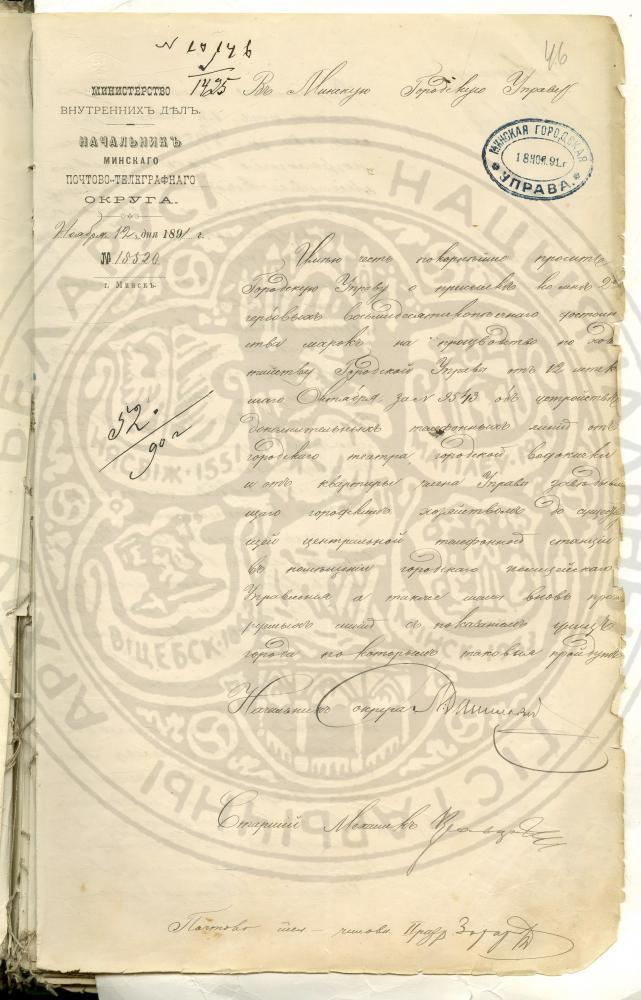 46
МИНИСТЕРСТВО
ВНУТРЕННИХЪ ДѢЛЪ.
НАЧАЛЬНИКЪ
МИНСКАГО
ПОЧТОВО-ТЕЛЕГРАФНАГО
ОКРУГА.
Ноября 12 дня 1891 г.
№ 18520
г. Минскъ.
1425
Въ Минскую Городскую Управу
МИНСКАЯ ГОРОДСКАЯ
18 НОЯ. 91 г
УПРАВА.
Имѣю честь покорнѣйше просить
Городскую Управу о присылкѣ ко мнѣ 2хъ
гербовыхъ восьмидесятикопѣечнаго достоин
ства марокъ на производство по хода
тайству Городской Управы отъ 12 минув
шаго Октября за № 9543 объ устройствѣ
дополнительныхъ телефонныхъ линій отъ
городскаго театра городской водокачки
и отъ квартиры члена Управы завѣдываю
щаго городскимъ хозяйствомъ до существую
щей центральной телефонной станціи
въ помѣщеніи городскаго полицейскаго
Управленія а также
линій съ показаніемъ улицъ
города по которымъ таковыя пройдутъ
52.
90 г
Начальникъ округа
Старшій Механикъ
Почтово тел- чиновн.